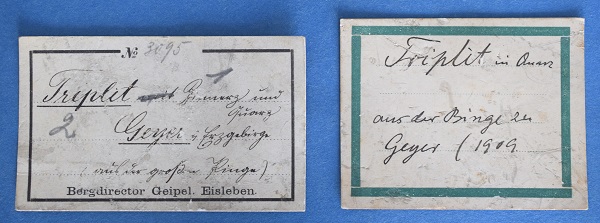 № 3095
1
Triplit mit Zinnerz und
Quarz
2
Geyer i/ Erzgebirge
(aus der großen Pinge)
Bergdirector Geipel. Eisleben.
Triplit in Quarz
aus der Binge zu
Geyer (1909